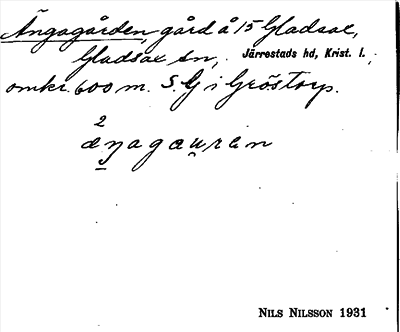 Ängagården, gård å 15 Gladsax,
Gladsax sn, Järrestads hd, Krist. l.,
omkr. 600 m. S. G i Gröstorp.
2
æŋagæu̯ren
NILS NILSSON 1931